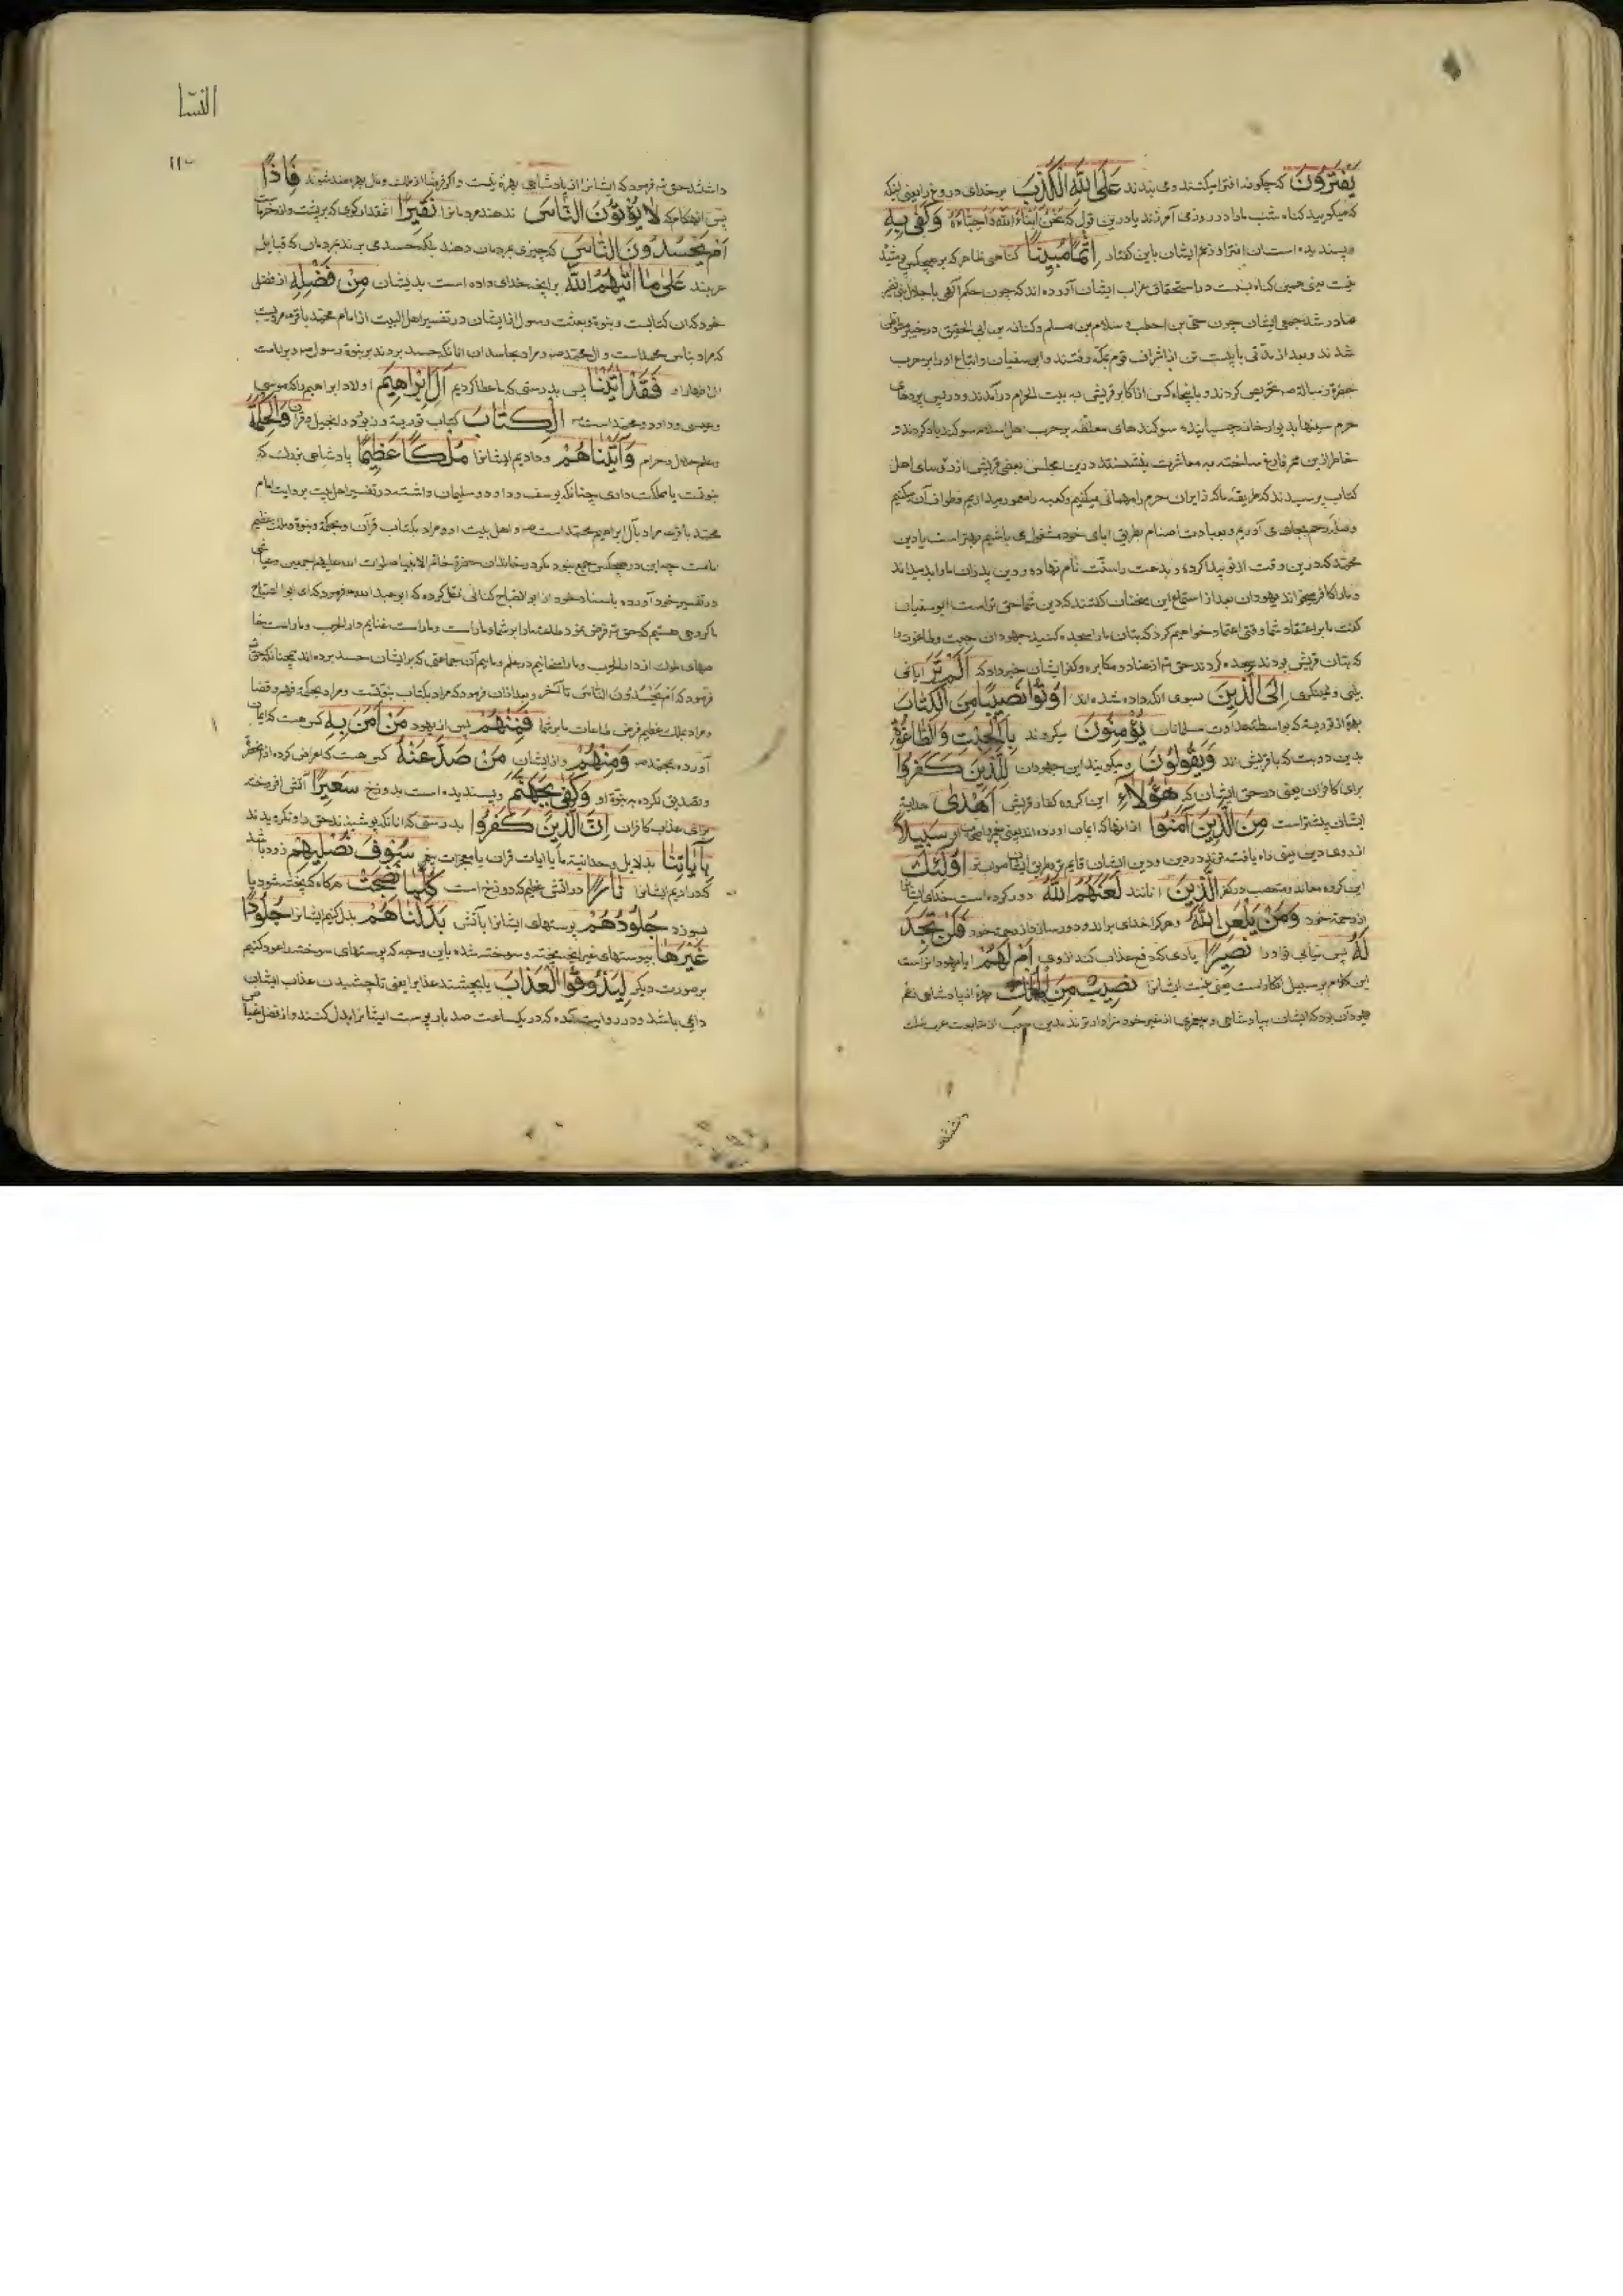 یَفْتَرُونَ که چگونه افترا میکنند و می بندند عَلَی اللّٰهِ الْکَذِبَ بر خدای دروغ را یعنی اینکه
که میگویید گناه شب ما را در روز می آمرزند یا درین قول که نَحْنُ اَبْنَاءُ اللّٰهِ وَاَحِبَّاءُهُ وَکَفٰی بِهِ
و پسندیده است ان افترا و زعم ایشان باین گفتار اِثْمًا مُبِینًا گناهی ظاهر که بر هیچکس پوشیده
نیست یعنی همین گناه بست در استحقاق عذاب ایشان آورده اند که چون حکم آلهی با جلای بنی نضیر
صادر شد جمعی ایشان چون حی بن اخطب و سلام بن مسلم و کنانه بن ابی الحقیق در خیبر متوطن
شدند و بعد از مدّتی با بیست تن از اشراف قوم بمکّه رفتند و ابو سفیان و اتباع او را بر حرب
حضرة رسالة ص تحریص کردند و با پنجاه کس از اکابر قریش به بیت الحرام درآمدند و در پس پردهای
حرم سینها بدیوار خانه چسبانیده سوکندهای مغلّظه بر حرب اهل اسلام سوکند یاد کردند و
خاطر ازین ممر فارغ ساخته به معاشرت بنشستند درین مجلس بعضی قریش از رؤسای اهل
کتاب پرسیدند که طریقهٔ ما که زایران حرم را مهمانی میکنیم و کعبه را معمور میداریم و طواف آن میکنیم
و صلهٔ رحم بجای می آوریم و بعبادت اصنام بطریق ابای خود مشغول می باشیم بهتر است یا دین
محمّد که درین وقت از نو پیدا کرده و بدعت را سنّت نام نهاده و دین پدران ما را بد میداند
و ما را کافر میخواند یهودان بعد از استماع این سخنان گفتند که دین شما حق تر است ابو سفیان
گفت ما بر اعتقاد شما وقتی اعتماد خواهیم کرد که بتان ما را سجده کنید جهودان جبت و طاغوت را
که بتان قریش بودند سجده کردند حق تع از عناد و مکابره و کفر ایشان خبر داد که اَلَمْ تَرَ ایا نمی
بینی و نمینگری اِلَی الَّذِینَ بسوی آنانکه داده شده اند اُوتُوا نَصِیبًا مِنَ الْکِتَابِ
بهرهٔ از توریة که بواسطهٔ عداوت مسلمانان یُؤْمِنُونَ میگروند بِالْجِبْتِ وَالطَّاغُوتِ
بدین دو بت که با قریش اند وَیَقُولُونَ و میگویند این جهودان لِلَّذِینَ کَفَرُوا
برای کافران یعنی در حق ایشان که هٰؤُلَاءِ این گروه کفار قریش اَهْدٰی هدایة
ایشان بیشتر است مِنَ الَّذِینَ اٰمَنُوا از انها که ایمان آورده اند سَبِیلًا
از روی دین یعنی راه یافته ترند در دین و دین ایشان اُولٰئِكَ
این گروه معاند و متعصب در کفر الَّذِینَ انانند لَعَنَهُمُ اللّٰهُ دور کرده است خدای ایشانرا
از رحمة خود وَمَنْ یَلْعَنِ اللّٰهُ و هر کرا خدای براند و دور سازد از رحمة خود فَلَنْ تَجِدَ
لَهُ پس نیابی تو او را نَصِیرًا یاری که دفع عذاب کند از وی اَمْ لَهُمْ ایا یهودانرا است
این کلام بر سبیل انکار است یعنی نیست ایشانرا نَصِیبٌ مِنَ الْمُلْكِ بهره از پادشاهی زعم
جهودان بود که ایشان بپادشاهی و پیغمبری از غیر خود سزاوارترند بدین سبب از متابعت عرب ننك
النسا
١١٠
داشتند حق تع فرمود که ایشانرا از پادشاهی بهرهٔ نیست و اگر فرضا از ملك و مال بهره مند شوند فَاِذًا
پس آنهنگام که لَا یُؤْتُونَ النَّاسَ ندهند مردمانرا نَقِیرًا
اَمْ یَحْسُدُونَ النَّاسَ که چیزی بمردمان دهند بلکه حسد می برند بمردمان که قبایل
عربند عَلٰی مَا اٰتٰیهُمُ اللّٰهُ بر انچه خدای داده است بدیشان مِنْ فَضْلِهِ از فضل
خود که ان کتابست و نبوة و بعثت رسول از ایشان در تفسیر اهل البیت از امام محمّد باقر ع مرویست
که مراد بناس محمد است و ال محمّد ص و مراد بحاسدان انانکه حسد بردند بر نبوة رسول ص و بر امامت
ال اطهار او فَقَدْ اٰتَیْنَا پس بدرستی که ما عطا کردیم اٰلَ اِبْرٰاهِیمَ اولاد ابراهیم را که موسی
و عیسی و داود و محمّد است الْکِتَابَ کتاب توریة و زبور و انجیل و قران وَالْحِکْمَةَ
و علم حلال و حرام وَاٰتَیْنَاهُمْ و دادیم ایشانرا مُلْکًا عَظِیمًا پادشاهی بزرك که
نبوتست یا مملکت داری چنانکه یوسف و داود و سلیمان داشتند در تفسیر اهل بیت بروایت امام
محمّد باقر ع مراد بآل ابراهیم محمّد است ص و اهل بیت او و مراد بکتاب قرآن و بحکمة و نبوة و ملك عظیم
امامت چه این در هیچکس جمع نبود مگر در خاندان حضرة خاتم الانبیا صلوات الله علیهم اجمعین
در تفسیر خود آورده باسناد خود از ابو الصباح کنانی نقل کرده که ابو عبد الله ع فرمود که ای ابو الصباح
ما گروهی هستیم که حق تع فرض نمود طاعة ما را بر شما و ما راست و ما راست غنایم دار الحرب و ما راست صفا
ماییم آن جماعتی که بر ایشان حسد برده اند همچنانکه حق تع
فرمود که اَمْ یَحْسُدُونَ النَّاسَ تا آخر و بعد ازان فرمود که مراد بکتاب نبوّتست و مراد بحکمة فهم و قضا
و مراد بملك عظیم فرض طاعات ما بر شما فَمِنْهُمْ پس از یهود مَنْ اٰمَنَ بِهِ کس هست که ایمان
آورده بمحمّد ص وَمِنْهُمْ و از ایشان مَنْ صَدَّ عَنْهُ کس هست که اعراض کرده از انحضرة
و تصدیق نکرده به نبوّة او وَکَفٰی بِجَهَنَّمَ و پسندیده است بدوزخ سَعِیرًا آتش افروخته
برای عذاب کافران اِنَّ الَّذِینَ کَفَرُوا بدرستی که انانکه پوشیدند حق را و نگرویدند
بِاٰیَاتِنَا بدلایل وحدانیة ما یا ایات قران یا معجزات سَوْفَ نُصْلِیهِمْ زود باشد
که در اریم ایشانرا نَارًا در اتش عظیم که دوزخ است کُلَّمَا نَضِجَتْ هرگاه که پخته شود یا
بسوزد جُلُودُهُمْ پوستهای ایشانرا بآتش بَدَّلْنَاهُمْ بدل کنیم ایشانرا جُلُودًا
غَیْرَهَا بپوستهای غیر انچه پخته و سوخته شده باین وجه که پوستهای سوخته را عود کنیم
بر صورت دیگر لِیَذُوقُوا الْعَذَابَ یا بچشند عذابرا یعنی تا چشیدن عذاب ایشان
دایمی باشد و در روایت آمده که در یکساعت صد بار پوست ایشانرا بدل کنند و از فضل عیاض
داشتند